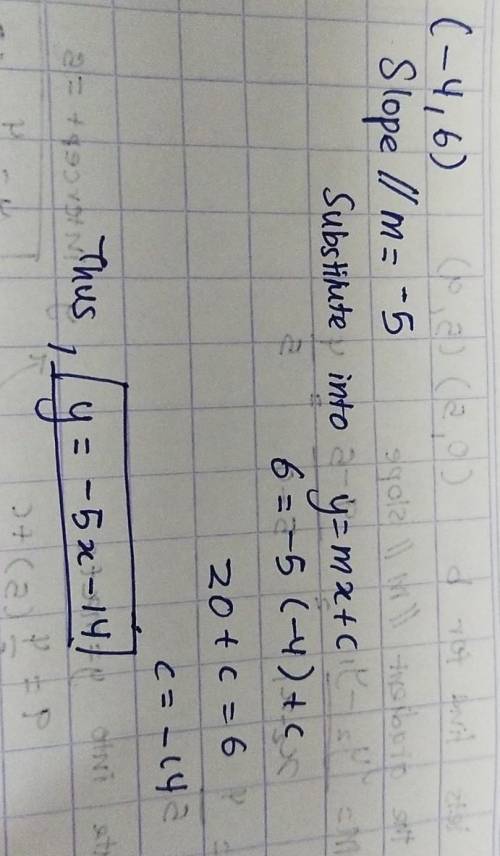 (-4, 6)
Slope // m = -5
Substitute into y = mx + c
6 = -5 (-4) + c
20 + c = 6
c = -14
Thus, y = -5x - 14